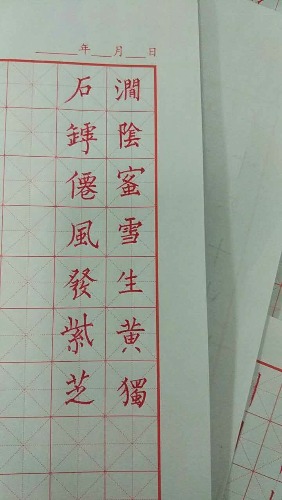 年 月 日
澗陰蜜雪生黃獨
石罅僊風發紫芝